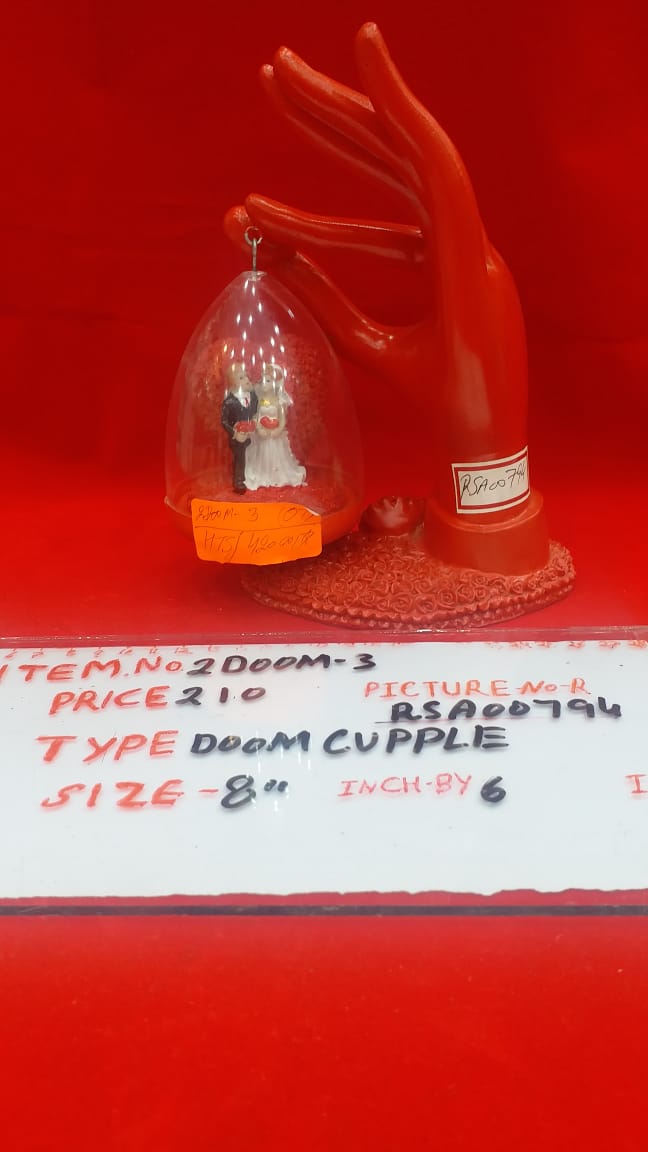 RSA00794
2DOOM- 3
HTS/
ITEM.No. 2DOOM-3
PRICE 210
PICTURE-No-R
RSA00794
TYPE DOOM CUPPLE
SIZE -8" INCH-BY 6